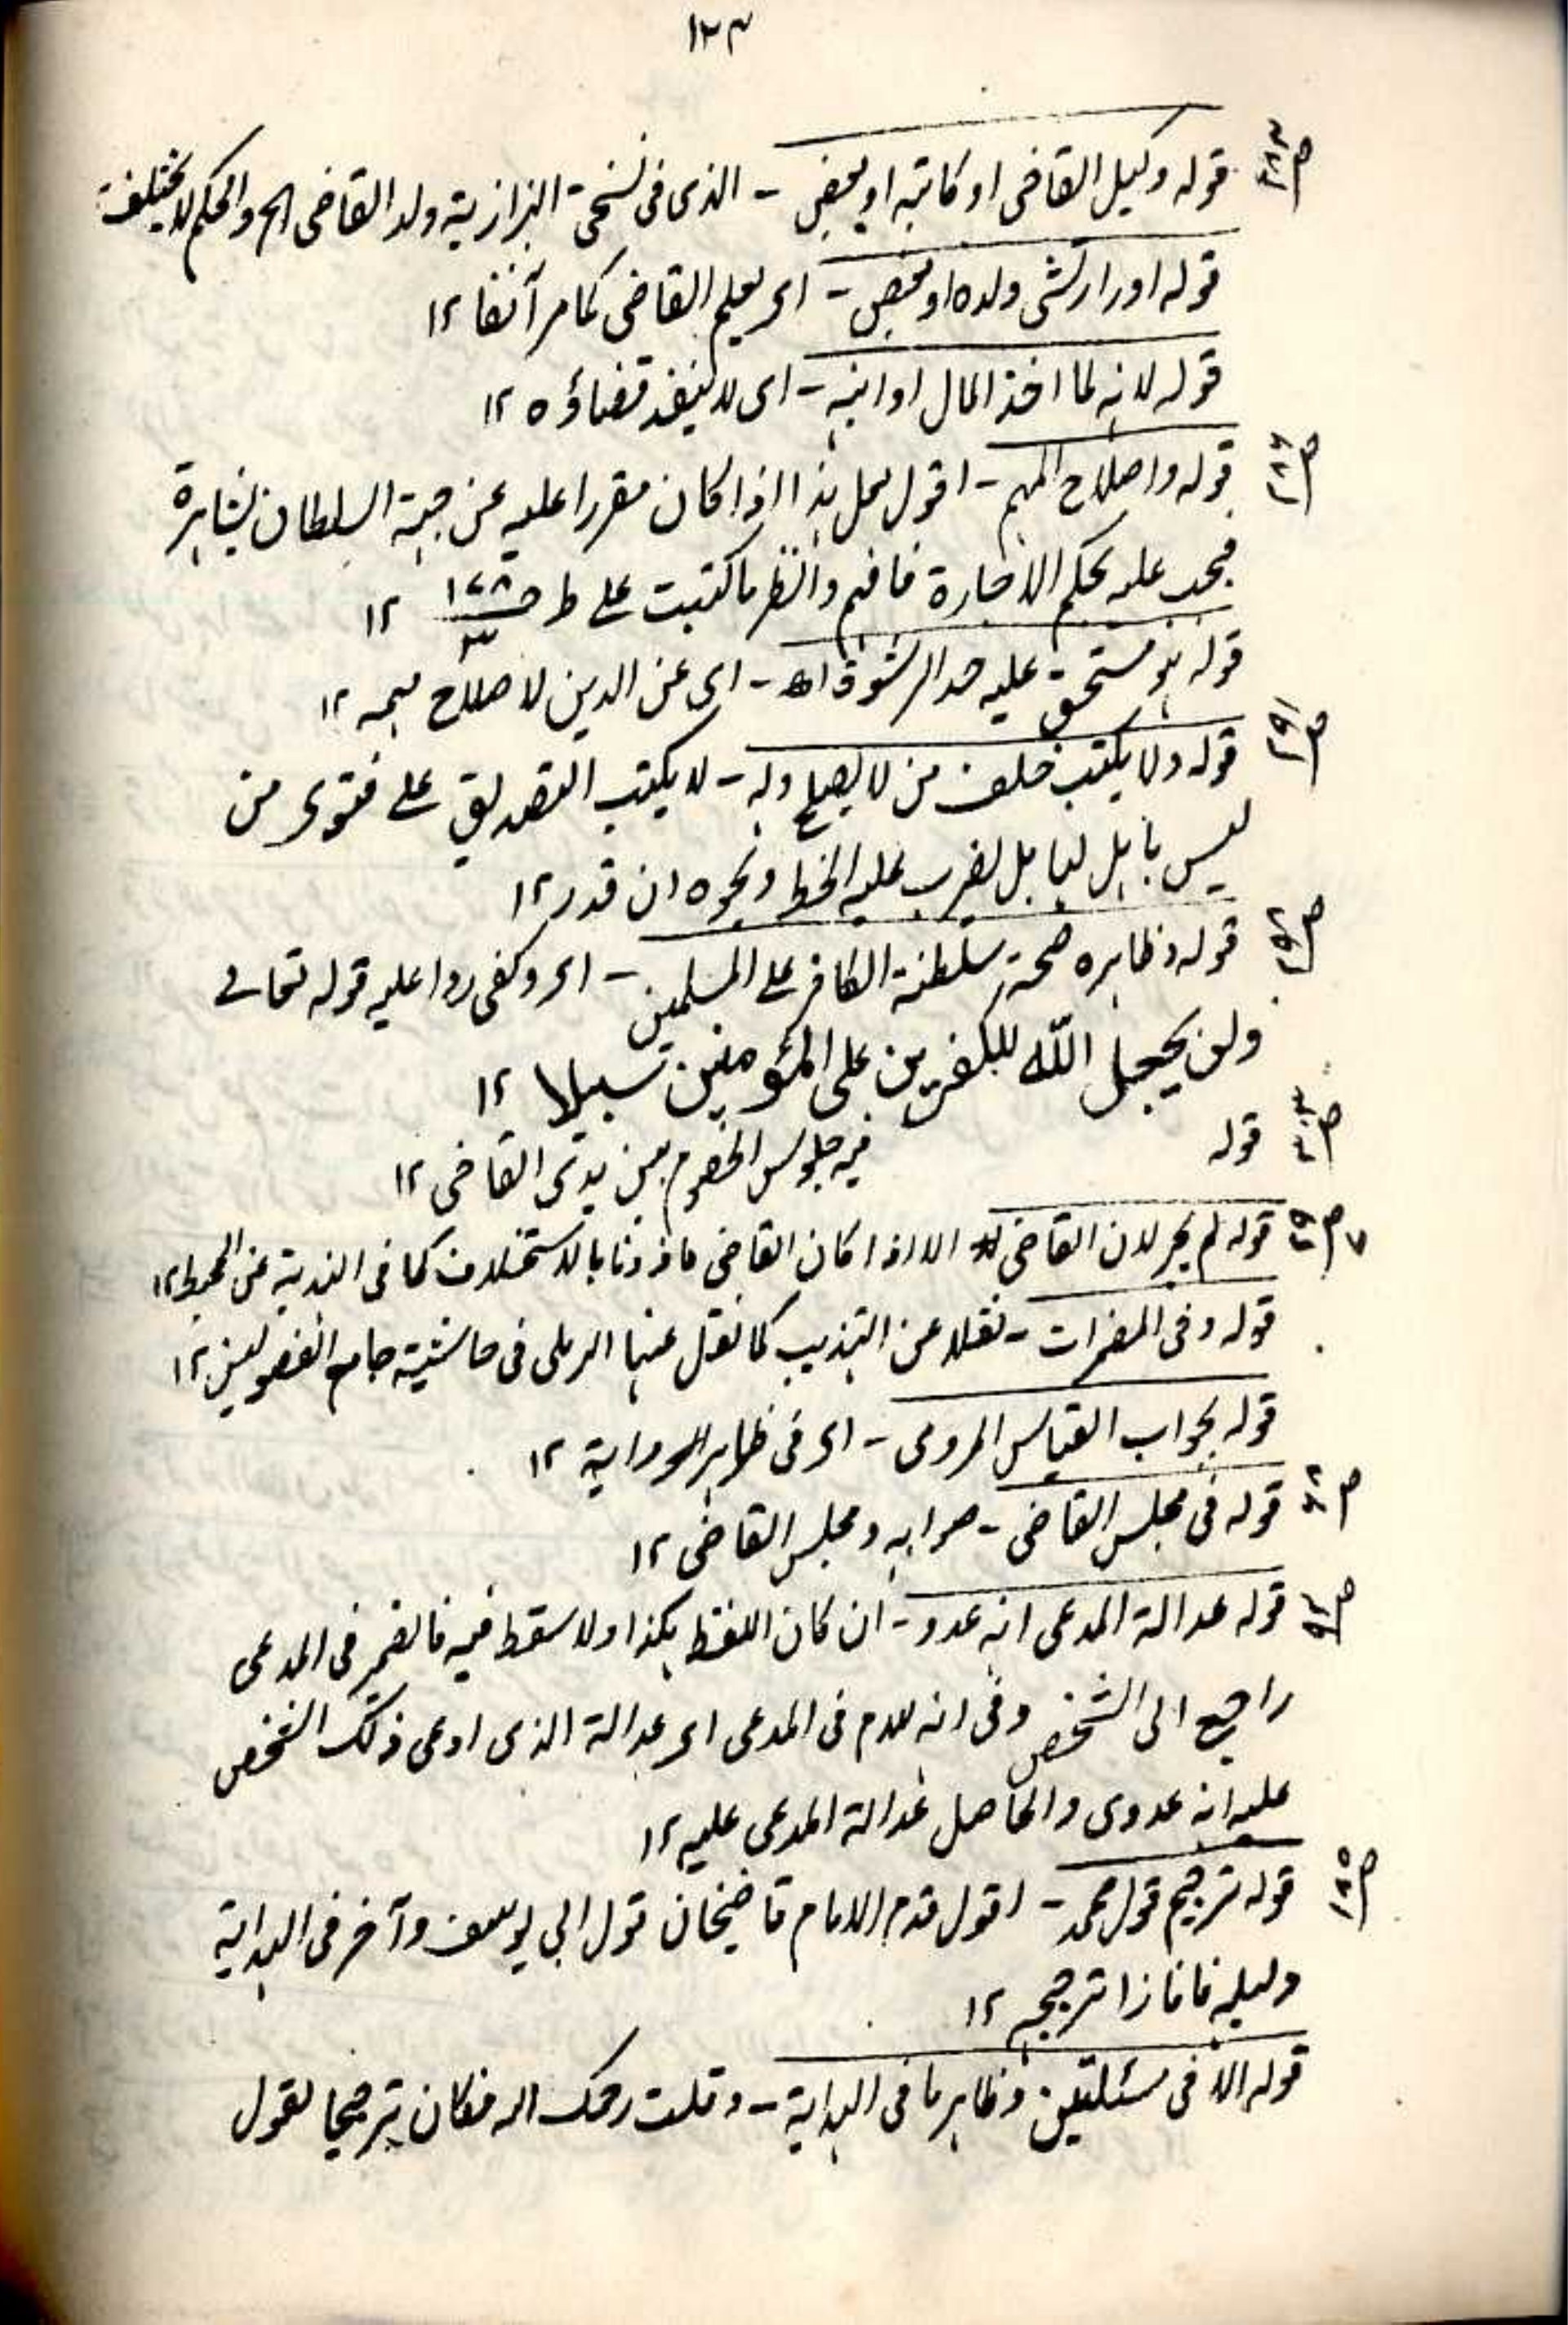 ١٢٣
قوله وكيل القاضى او كاتبه او بعض - الذى فى نسختى البزازية ولد القاضى الخ والحكم لا يختلف
قوله اورا ارتشى ولده او بعض - اى بعلم القاضى كما مر آنفا ١٢
قوله لانه لما اخذ المال او ابنه - اى لا ينفذ قضاؤه ١٢
قوله واصلاح المهم - اقول لعل هذا اذا كان مقررا عليه عن جهة السلطان بمشاهرة
فيجب عليه بحكم الاجارة فافهم وانظر ما كتبت على ط ص ١٧٨/٣ ١٢
قوله هو مستحق عليه حد الرشوة اه - اى عن الدين لاصلاح مهمه ١٢
ص٢٩١ قوله ولا يكتب خلف من لا يصلح وله - لا يكتب التصديق على فتوى من
ليس باهل لها بل لضرب عليه الخط ونحوه ان قدر ١٢
قوله وظاهره صحة سلطنة الكافر على المسلمين - اى وكفى ردا عليه قوله تعالى
ولن يجعل الله للكفرين على المؤمنين سبيلا ١٢
قوله فيه جلوس الخصوم بين يدى القاضى ١٢
قوله لم يجز لان القاضى الا اذا كان القاضى ماذونا بالاستخلاف كما فى الهندية عن المحيط ١٢
قوله وفى المضمرات - نقلا عن التهذيب كما نقل عنها الرملى فى حاشية جامع الفصولين ١٢
قوله بجواب القياس المروى - اى فى ظاهر الرواية ١٢
قوله فى مجلس القاضى - صوابه ومجلس القاضى ١٢
قوله عدالة المدعى انه عدو - ان كان اللفظ هكذا ولا سقط فيه فالضمير فى المدعى
راجع الى الشخص وفى انه للام فى المدعى اى عدالة الذى ادعى ذلك الشخص
عليه انه عدوى والحاصل عدالة المدعى عليه ١٢
قوله ترجيح قول محمد - اقول قدم الامام قاضيخان قول ابي يوسف وآخر فى الهداية
دليله فافازا ترجيحه ١٢
قوله الا فى مسئلتين وظاهر ما فى الهداية - وقلت رحمك الله فكان ترجيحا لقول